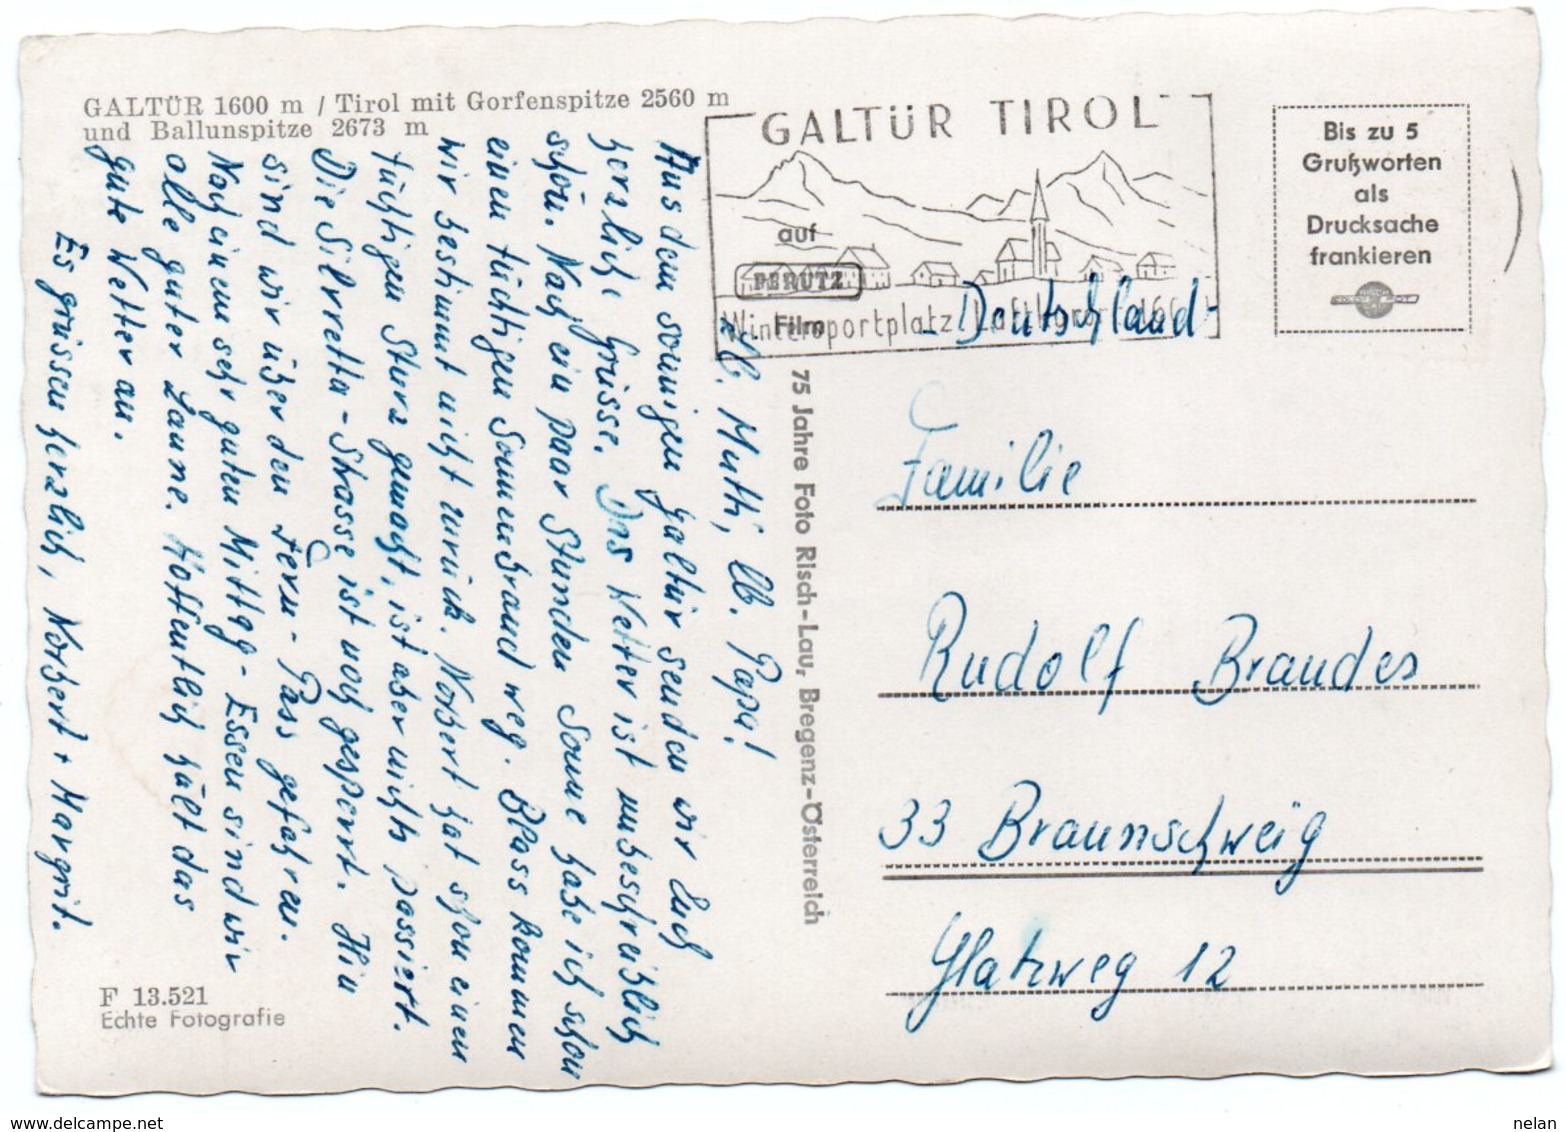 GALTÜR 1600 m / Tirol mit Gorfenspitze 2560 m
und Ballunspitze 2673 m
GALTÜR TIROL
auf
PERUTZ
Film
Wintersportplatz
Bis zu 5
Grußworten
als
Drucksache
frankieren
- Deutschland -
lb. Mutti, lb. Papa!
Aus dem sonnigen Galtür senden wir Euch
herzliche Grüsse. Das Wetter ist unbeschreiblich
schön. Nach ein paar Stunden Sonne habe ich schon
einen tüchtigen Sonnenbrand weg. Blass kommen
wir bestimmt nicht zurück. Norbert hat schon einen
tüchtigen Sturz gemacht, ist aber nichts passiert.
Die Silvretta-Strasse ist noch gesperrt. Hin
sind wir über den Fern-Pass gefahren.
Nach einem sehr guten Mittag-Essen sind wir
alle guter Laune. Hoffentlich hält das
gute Wetter an.
Es grüssen herzlich, Norbert + Margrit.
75 Jahre Foto Risch-Lau, Bregenz-Österreich
Familie
Rudolf Brandes
33 Braunschweig
Glatzweg 12
F 13.521
Echte Fotografie
nelan
www.delcampe.net